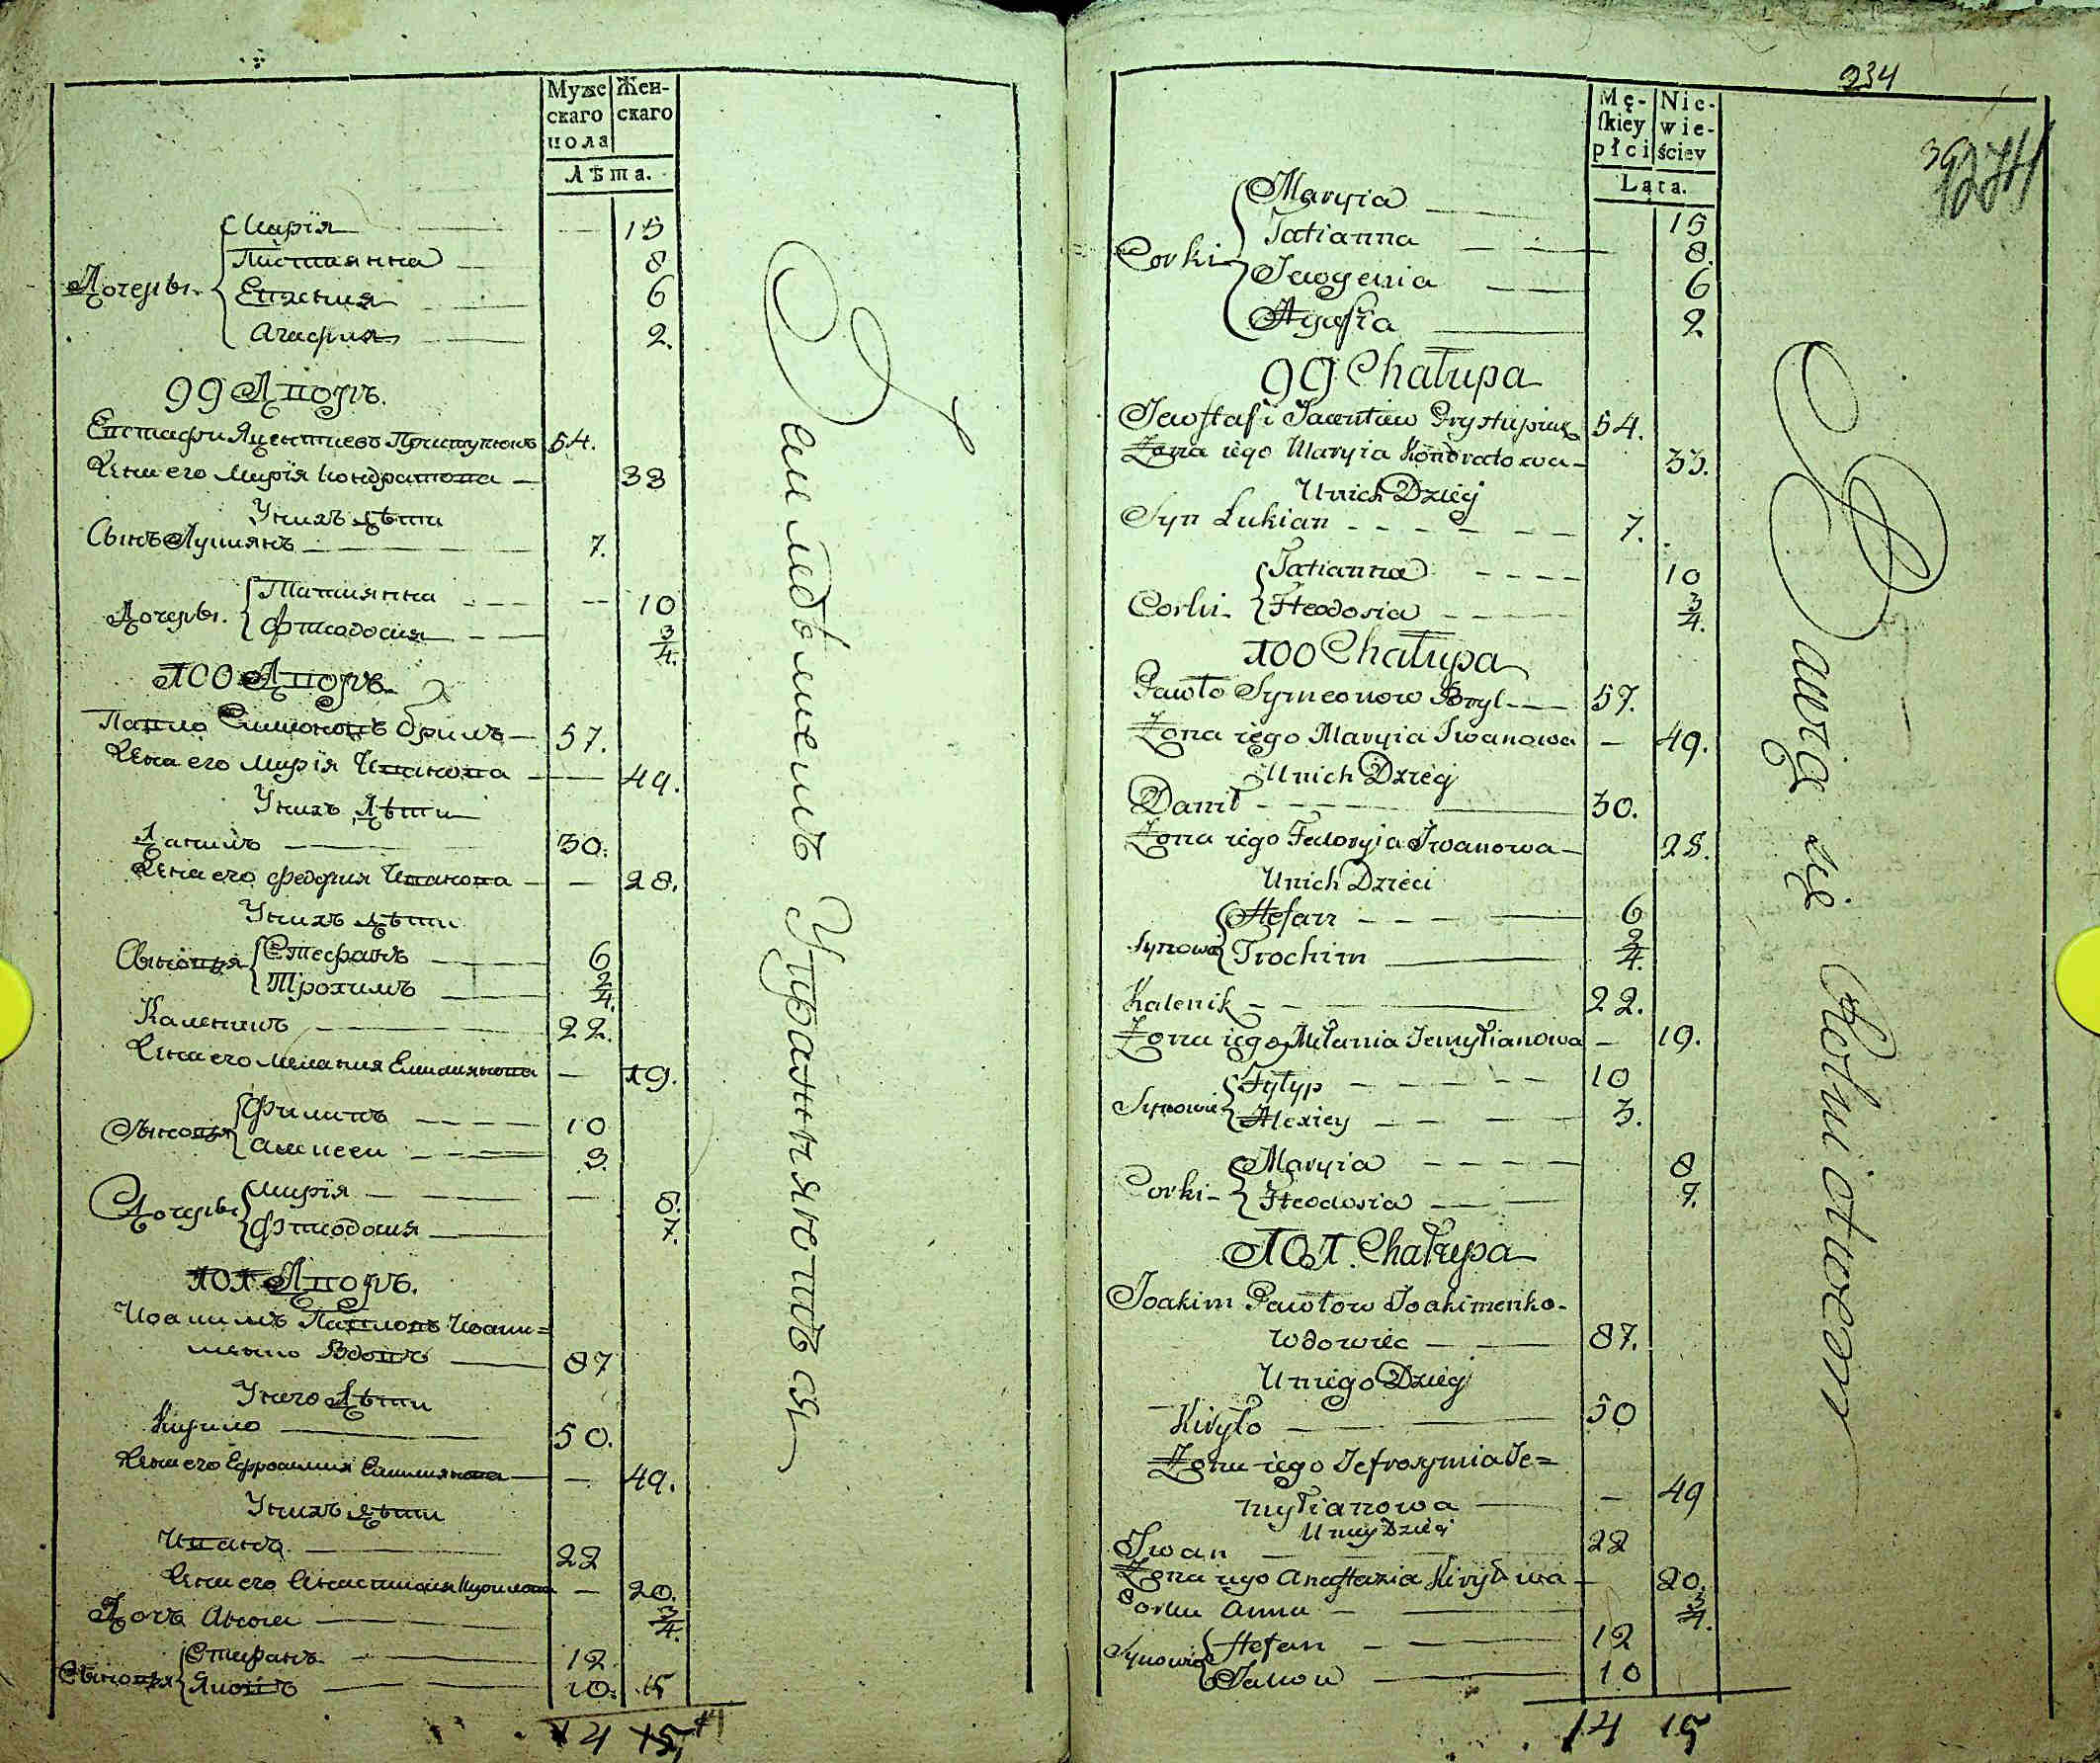 Муже Жен-
скаго скаго
пола
Лѣта.
Дочеры
Марія 15
Татіянна 8
Евгенія 6
Агафия 2.
99 Дворъ.
Евстафи Якентиевъ Приступюкъ 54.
Жена его Марія Кондратова 33
У нихъ дѣти
Сынъ Лукиянъ 7.
Дочеры.
Татиянна 10
Фтеодосия 3/4.
100 Дворъ.
Павло Симеоновъ Брилъ 57.
Жена его Марія Иванова 49.
У нихъ Дѣти
Данилъ 30.
Жена его Федория Иванова 28.
У нихъ дѣти
Сыновья
Стефанъ 6
Трохимъ 2/4.
Каленикъ 22.
Жена его Мелания Емилиянова 19.
Сыновья
Филипъ 10
Алексеи 3.
Дочеры
Марія 8.
Фтеодосия 7.
101 Дворъ.
Иоакимъ Павловъ Иоаки=
менко Вдовъ 87
У него Дѣти
Кирило 50.
Жена его Ефросиния Емилиянова 49.
У нихъ дѣти
Иванъ 22
Жена его Анастасия Кирилова 20.
Дочь Анна 3/4.
Сыновья
Стефанъ 12
Яковъ 10. 15
14 15
Самъ съ мѣломъ Управляютъся
234
274
Mę- Nie-
skiey wie-
płci ściey
Lata.
Corki
Maryia 15
Tatianna 8.
Jewgenia 6
Agafia 2
99 Chałupa
Jewstafi Jacentiew Prystupiuk 54.
Zona iego Maryia Kondratowa 33.
U nich Dzieci
Syn Łukian 7.
Corki
Tatianna 10
Fteodosia 3/4.
100 Chałupa
Pawło Symeonow Bryl 57.
Zona iego Maryia Iwanowa 49.
U nich Dzieci
Danił 30.
Zona iego Fedoryia Iwanowa 28.
U nich Dzieci
Synowie
Stefan 6
Trochim 2/4.
Kalenik 22.
Zona iego Mełania Jemylianowa 19.
Synowie
Fyłyp 10
Alexiey 3.
Corki
Maryia 8
Fteodosia 7.
101. Chałupa
Joakim Pawłow Joakimenko
Wdowiec 87.
U niego Dzieci
Kiryło 50
Zona iego Jefrosynia Je=
myłianowa 49
U nich Dzieci
Iwan 22
Zona iego Anastazia Kiryłowa 20.
Corka Anna 3/4.
Synowie
Stefan 12
Jakow 10
14 15
Bawią się Rolnictwem